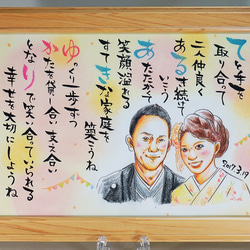 てと手を
取り合って
二人仲良く
あるき続け
いこう
あたたかくて
笑顔溢れる
すてきな家庭を
築こうね
ゆっくり一歩ずつ
かたを貸し合い支え合い
となりで笑い合っていられる
幸せを大切にしようね
2017.3.19